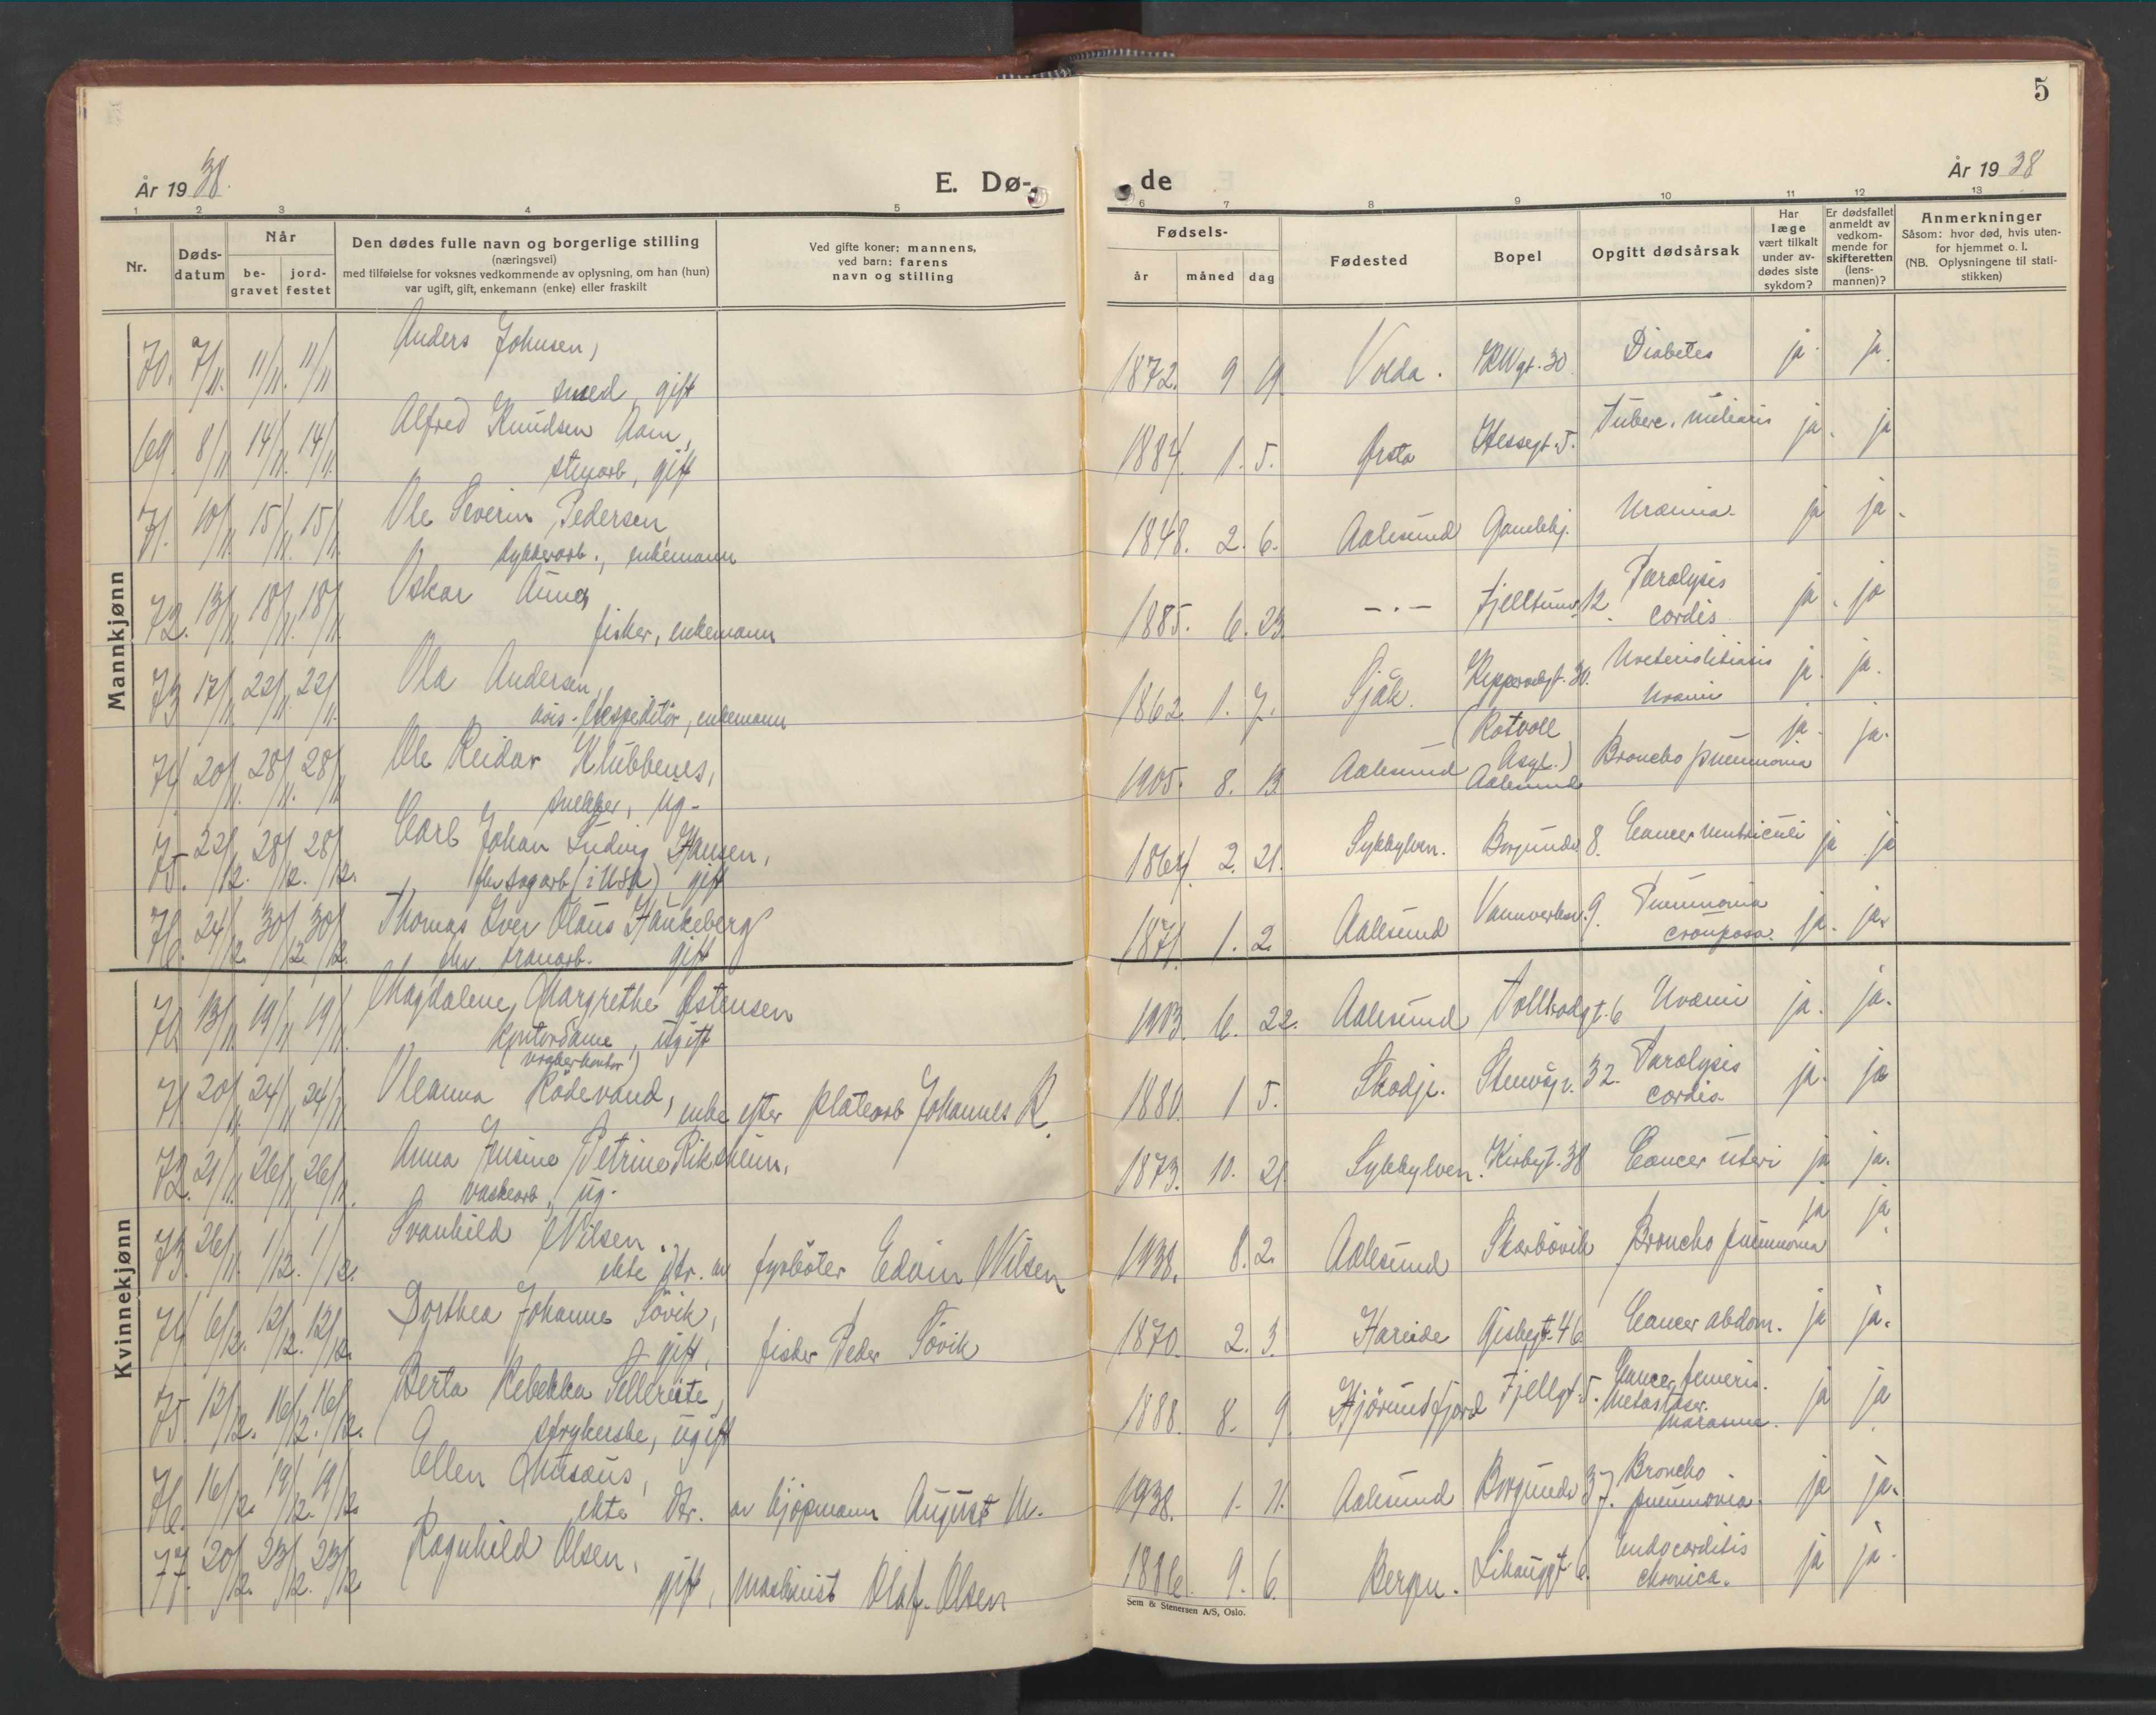 5
År 1938.
E. Dø-
de
År 1938
1 2 3 4 5
6 7 8 9 10 11 12 13
Nr.
Døds-
datum
Når
be-
gravet
jord-
festet
Den dødes fulle navn og borgerlige stilling
(næringsvei)
med tilføielse for voksnes vedkommende av oplysning, om han (hun)
var ugift, gift, enkemann (enke) eller fraskilt
Ved gifte koner: mannens,
ved barn: farens
navn og stilling
Fødsels-
år måned dag
Fødested
Bopel
Opgitt dødsårsak
Har
læge
vært tilkalt
under av-
dødes siste
sykdom?
Er dødsfallet
anmeldt av
vedkom-
mende for
skifteretten
(lens-
mannen)?
Anmerkninger
Såsom: hvor død, hvis uten-
for hjemmet o. l.
(NB. Oplysningene til stati-
stikken)
Mannkjønn
70. 7/11. 11/11. 11/11 Anders Johnsen,
smed, gift
1872. 9 19 Volda. 30. Diabetes ja. ja.
69. 8/11 14/11. 14/11. Alfred Knudsen Aam,
stenarb, gift
1884. 1. 5. Ørsta Hessegt. 5. Tuberc. miliaris ja. ja
71. 10/11. 15/11. 15/11. Ole Severin Pedersen
enkemann
1848. 2. 6. Aalesund Gamlehj. Uræmia. ja ja.
72. 13/11. 18/11. 18/11 Oskar
fisker, enkemann
1885. 6. 23. -.- 12. Paralysis
cordis ja. ja
73 17/11. 22/11. 22/11. Ola Andersen,
enkemann
1862. 1. 7. Sjåk. 30. Uræmi ja. ja.
74 20/11. 28/11. 28/11 Ole Reidar Klubbenes,
snekker, ug.
1905. 8. 13. Aalesund (Rotvoll
Asyl.)
Aalesund Broncho pneumonia ja. ja.
75. 22/12. 28/12. 28/12. Carl Johan Ludvig Hansen,
fhv sagarb (i USA), gift
1864. 2. 21. Sykkylven. Borgundv 8. Cancer ventriculi ja ja
76. 24/12. 30/12. 30/12. Thomas Iver Olaus Haukeberg
fhv. tranarb. gift
1871. 1. 2. Aalesund 9. Pneumonia
crouposa. ja. ja.
Kvinnekjønn
70 13/11 19/11 19/11. Magdalene Margrethe Østensen
kontordame, ugift
(vrakerkontor)
1903. 6. 22. Aalesund Tollbodgt. 6 Uræmi ja. ja.
71. 20/11. 24/11 24/11 Oleanna Rödevand, enke efter platearb Johannes R.
1880. 1 5. Skodje. Stenvågv. 32. Paralysis
cordis ja. ja
72. 21/11. 26/11 26/11. Anna Jensine Petrine Riksheim,
vaskearb., ug.
1873. 10. 21. Sykkylven. Kirkegt. 38 Cancer uteri ja ja.
73. 26/11. 1/12. 1/12. Svanhild Nilsen.
ekte dtr. av fyrböter Edvin Nilsen
1938. 8. 2. Aalesund Skarbövik Broncho pneumonia ja ja.
74. 6/12. 12/12. 12/12. Dorthea Johanne Sövik,
gift, fisker Peder Sövik
1870. 2. 3. Hareide 46 Cancer abdom. ja ja.
75. 12/12. 16/12. 16/12. Berta Rebekka
strykerske, ugift
1888. 8. 9. Hjörundfjord Fjellgt. 5. Cancer
Metastaser. ja ja
76. 16/12. 19/12. 19/12. Ellen Musæus,
ekte dtr. av kjøpmann August M.
1938. 1. 21. Aalesund Borgundv 37. Broncho
pneumonia. ja ja.
77. 20/12. 23/12. 23/12 Ragnhild Olsen,
gift, maskinist Olaf Olsen
1886. 9. 6. Bergen. Lihauggt 6. Endocarditis
chronica. ja ja.
Sem & Stenersen A/S, Oslo.